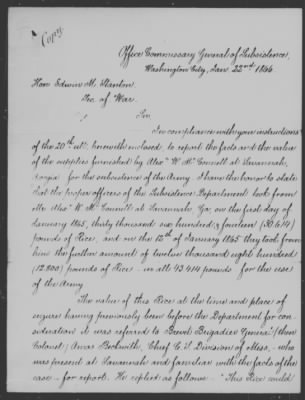 Copy
Office Commissary General of Subsistence,
Washington City, Jan. 22nd, 1866.
Hon Edwin M. Stanton
Sec. of War.
Sir,
In compliance with your instructions
of the 20th ult., herewith enclosed, to report the facts and the value
of the supplies furnished by Alexr W. McConnell at Savannah,
Georgia for the subsistence of the Army. I have the honor to state
that the proper officers of the Subsistence Department took from
Alexr W. McConnell at Savannah, Ga, on the first day of
January 1865, thirty thousand six hundred & fourteen (30.614)
pounds of Rice, and on the 12th of January 1865 they took from
him the further amount of twelve thousand eight hundred
(12.800) pounds of Rice - in all 43.414 pounds for the use
of the Army.
The value of this Rice at the time and place of
seizure having previously been before the Department for con-
sideration it was referred to Brevet Brigadier General (then
Colonel) Amos Beckwith, Chief C.S. Division of Miss. - who
was present at Savannah and familiar with the facts of the
case - for report. He replied as follows - "This Rice could